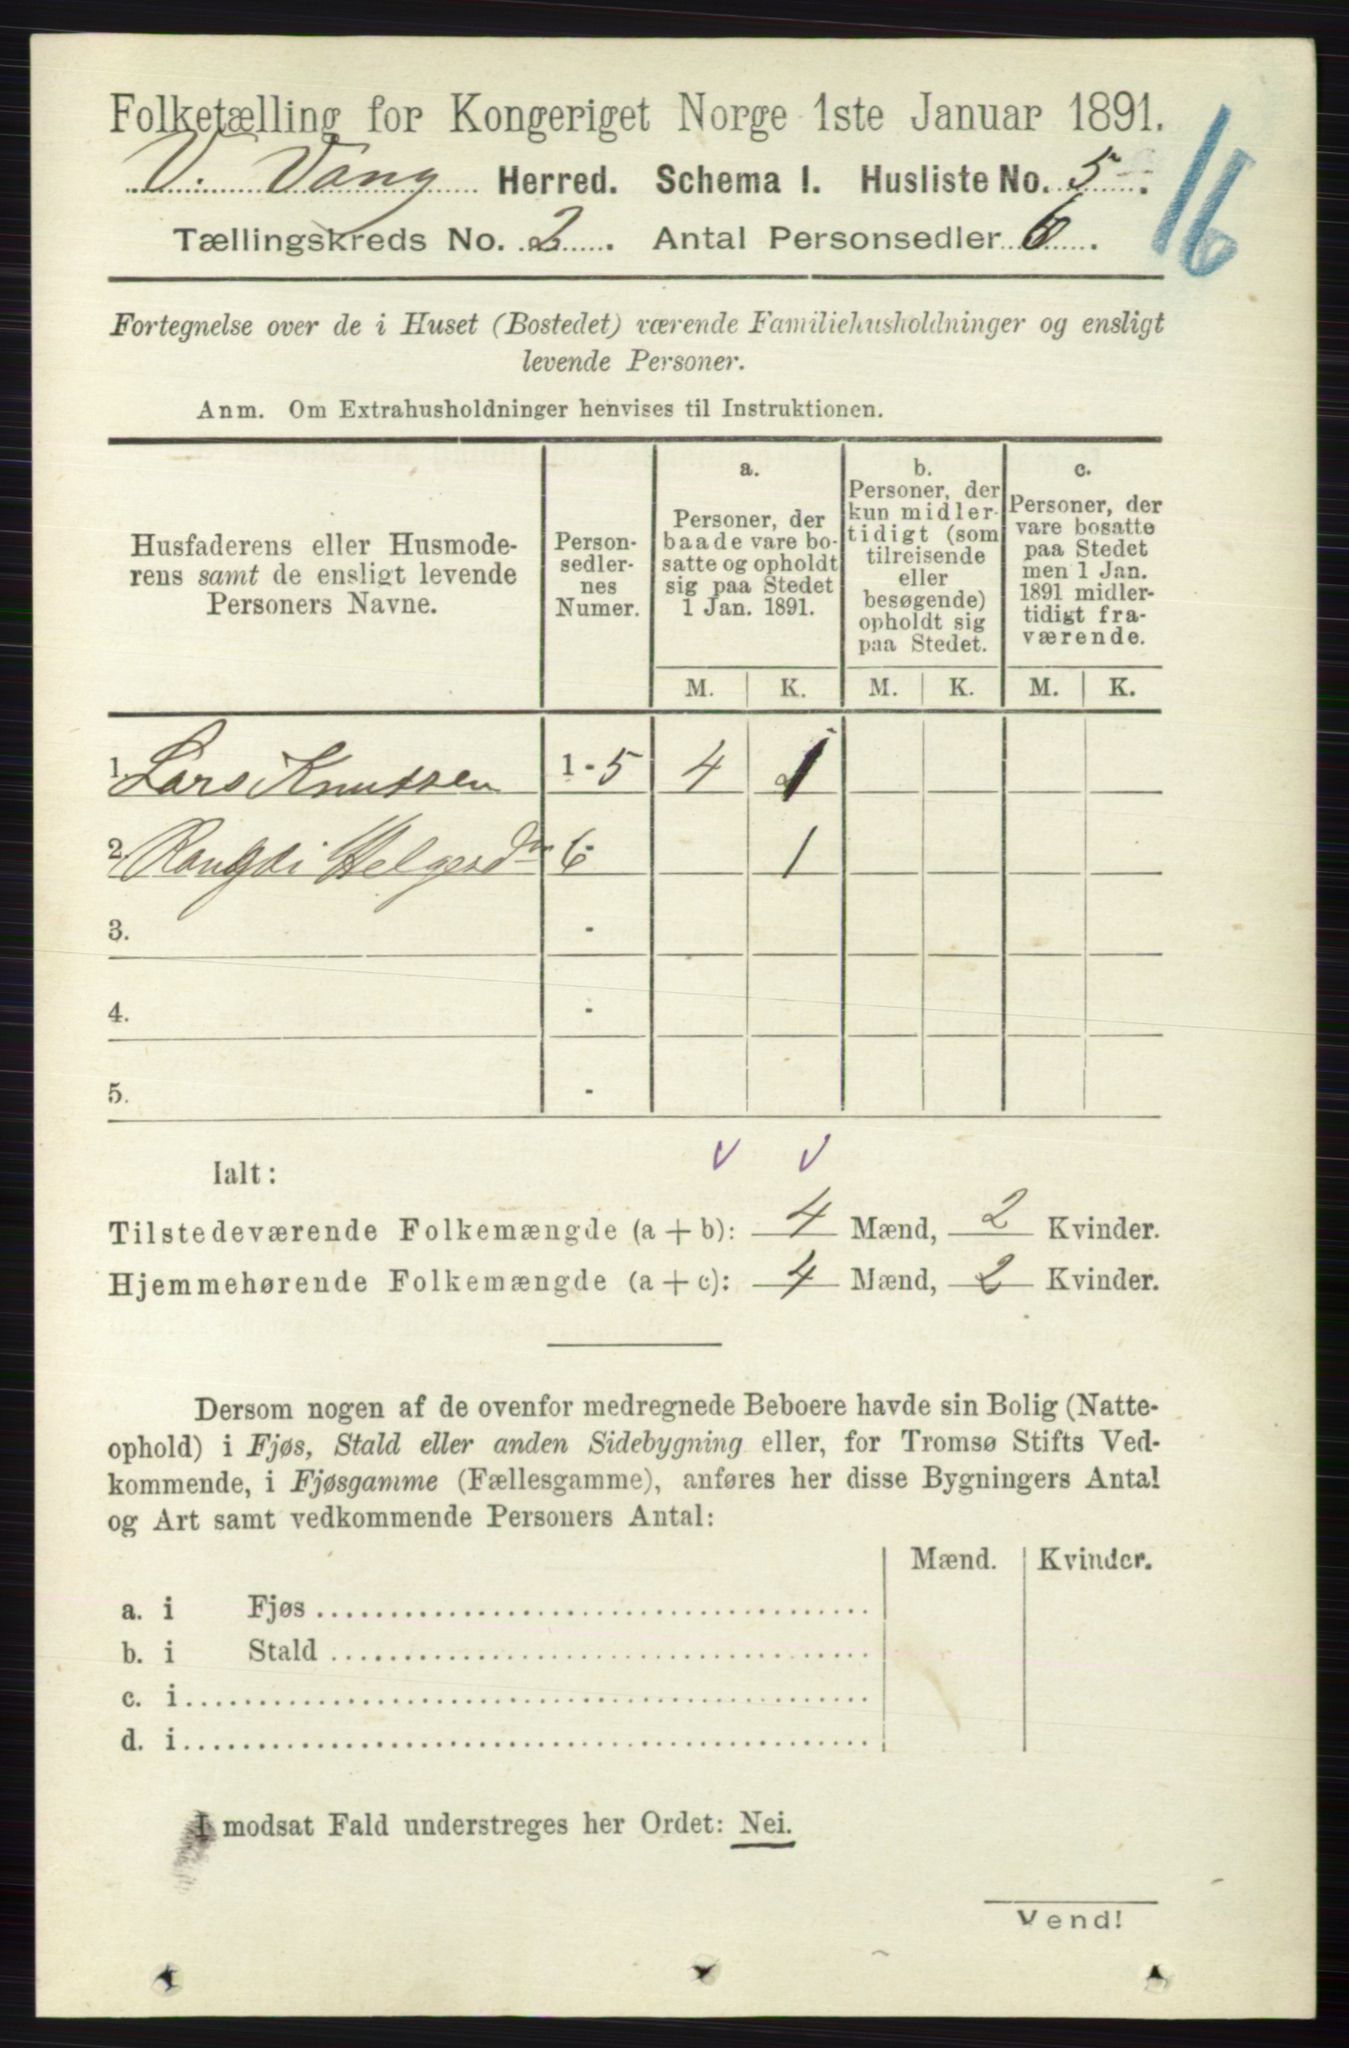 Folketælling for Kongeriget Norge 1ste Januar 1891.
V. Vang Herred. Schema I. Husliste No. 5.
Tællingskreds No. 2. Antal Personsedler 6.
16
Fortegnelse over de i Huset (Bostedet) værende Familiehusholdninger og ensligt
levende Personer.
Anm. Om Extrahusholdninger henvises til Instruktionen.
Husfaderens eller Husmode-
rens samt de ensligt levende
Personers Navne.
Person-
sedler-
nes
Numer.
a.
Personer, der
baade vare bo-
satte og opholdt
sig paa Stedet
1 Jan. 1891.
b.
Personer, der
kun midler-
tidigt (som
tilreisende
eller
besøgende)
opholdt sig
paa Stedet.
c.
Personer, der
vare bosatte
paa Stedet
men 1 Jan.
1891 midler-
tidigt fra-
værende.
M. K. M. K. M. K.
1. Lars Knutsen 1 - 5 4 1
2. Rangdi Helgesdtr 6 - 1
3. -
4. -
5. -
Ialt:
Tilstedeværende Folkemængde (a + b): 4 Mænd, 2 Kvinder.
Hjemmehørende Folkemængde (a + c): 4 Mænd, 2 Kvinder.
Dersom nogen af de ovenfor medregnede Beboere havde sin Bolig (Natte-
ophold) i Fjøs, Stald eller anden Sidebygning eller, for Tromsø Stifts Ved-
kommende, i Fjøsgamme (Fællesgamme), anføres her disse Bygningers Antal
og Art samt vedkommende Personers Antal:
Mænd. Kvinder.
a. i Fjøs
b. i Stald
c. i
d. i
I modsat Fald understreges her Ordet: Nei.
Vend!